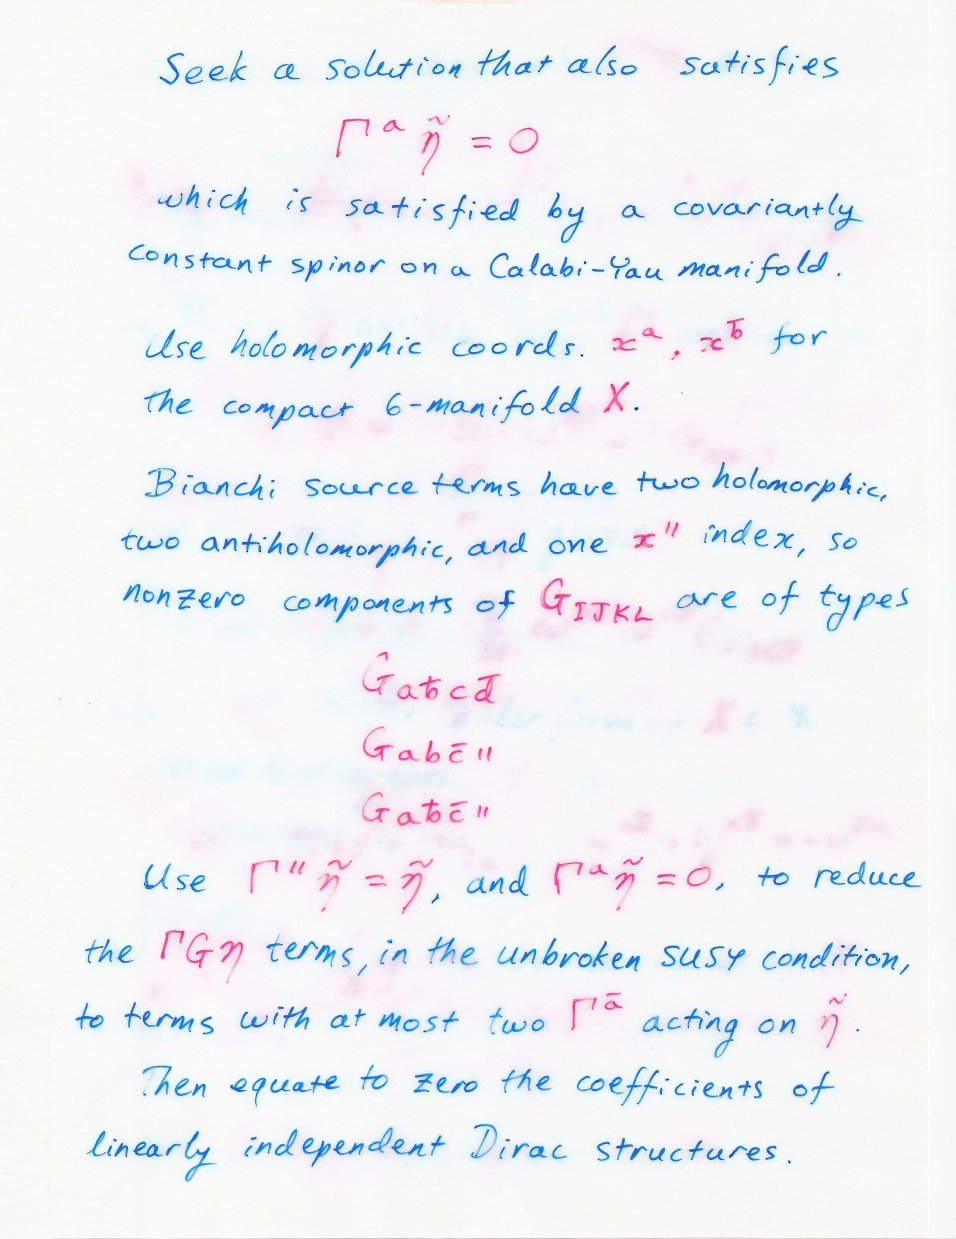 Seek a solution that also satisfies
Γᵃ η̃ = 0
which is satisfied by a covariantly
constant spinor on a Calabi-Yau manifold.
Use holomorphic coords. xᵃ, x^b̄ for
the compact 6-manifold X.
Bianchi source terms have two holomorphic,
two antiholomorphic, and one x¹¹ index, so
nonzero components of G_IJKL are of types
G_ab̄cd̄
G_abc̄11
G_ab̄c̄11
Use Γ¹¹ η̃ = η̃, and Γᵃ η̃ = 0, to reduce
the ΓGη terms, in the unbroken SUSY condition,
to terms with at most two Γ^ā acting on η̃.
Then equate to zero the coefficients of
linearly independent Dirac structures.